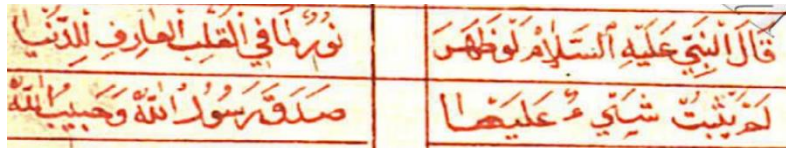 قَالَ النَّبِيُّ عَلَيْهِ السَّلَامُ لَوْ ظَهَرَ نُورُ مَا فِي الْقَلْبِ الْعَارِفِ لِلدُّنْيَا
لَمْ يَثْبُتْ شَيْءٌ عَلَيْهَا صَدَقَ رَسُولُ اللَّهِ وَحَبِيبُ اللَّهِ